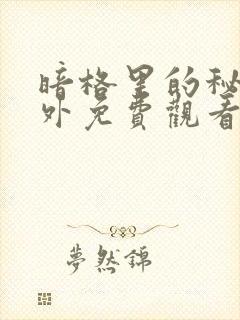 暗格里的秘
外免費觀看
夢然錦